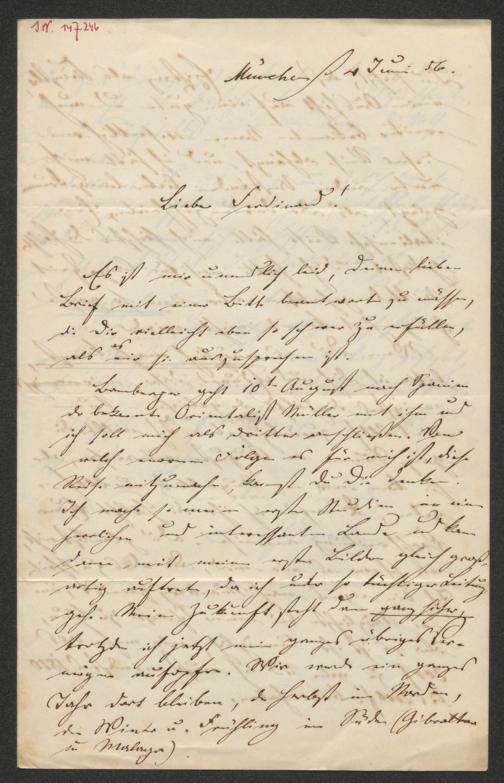 IN. 147.246
München 4 Juni 56.
Lieber Ferdinand!
Es ist mir unendlich leid, Deinen lieben
Brief mit einer Bitte beantworten zu müssen,
die Dir vielleicht eben so schwer zu erfüllen,
als es mir sie auszusprechen ist.
Bamberger geht 10t August nach Spanien
der bekannte Orientalist Müller mit ihm und
ich soll mich als Dritter anschließen. Von
welch enormen Folgen es für mich ist, diese
Reise mitzumachen, kannst du Dir denken.
Ich mache so meine ersten Studien in einem
herrlichen und interessanten Lande und kann
dann mit meinen ersten Bildern gleich groß-
artig auftreten, da ich unter so tüchtiger Leitung
gehe. Meine Zukunft steht dann ganz sicher,
trotzdem ich jetzt mein ganzes übriges Ver-
mögen aufopfere. Wir werden ein ganzes
Jahr dort bleiben, den Herbst im Norden,
den Winter u. Frühling im Süden (Gibraltar
u Malaga)